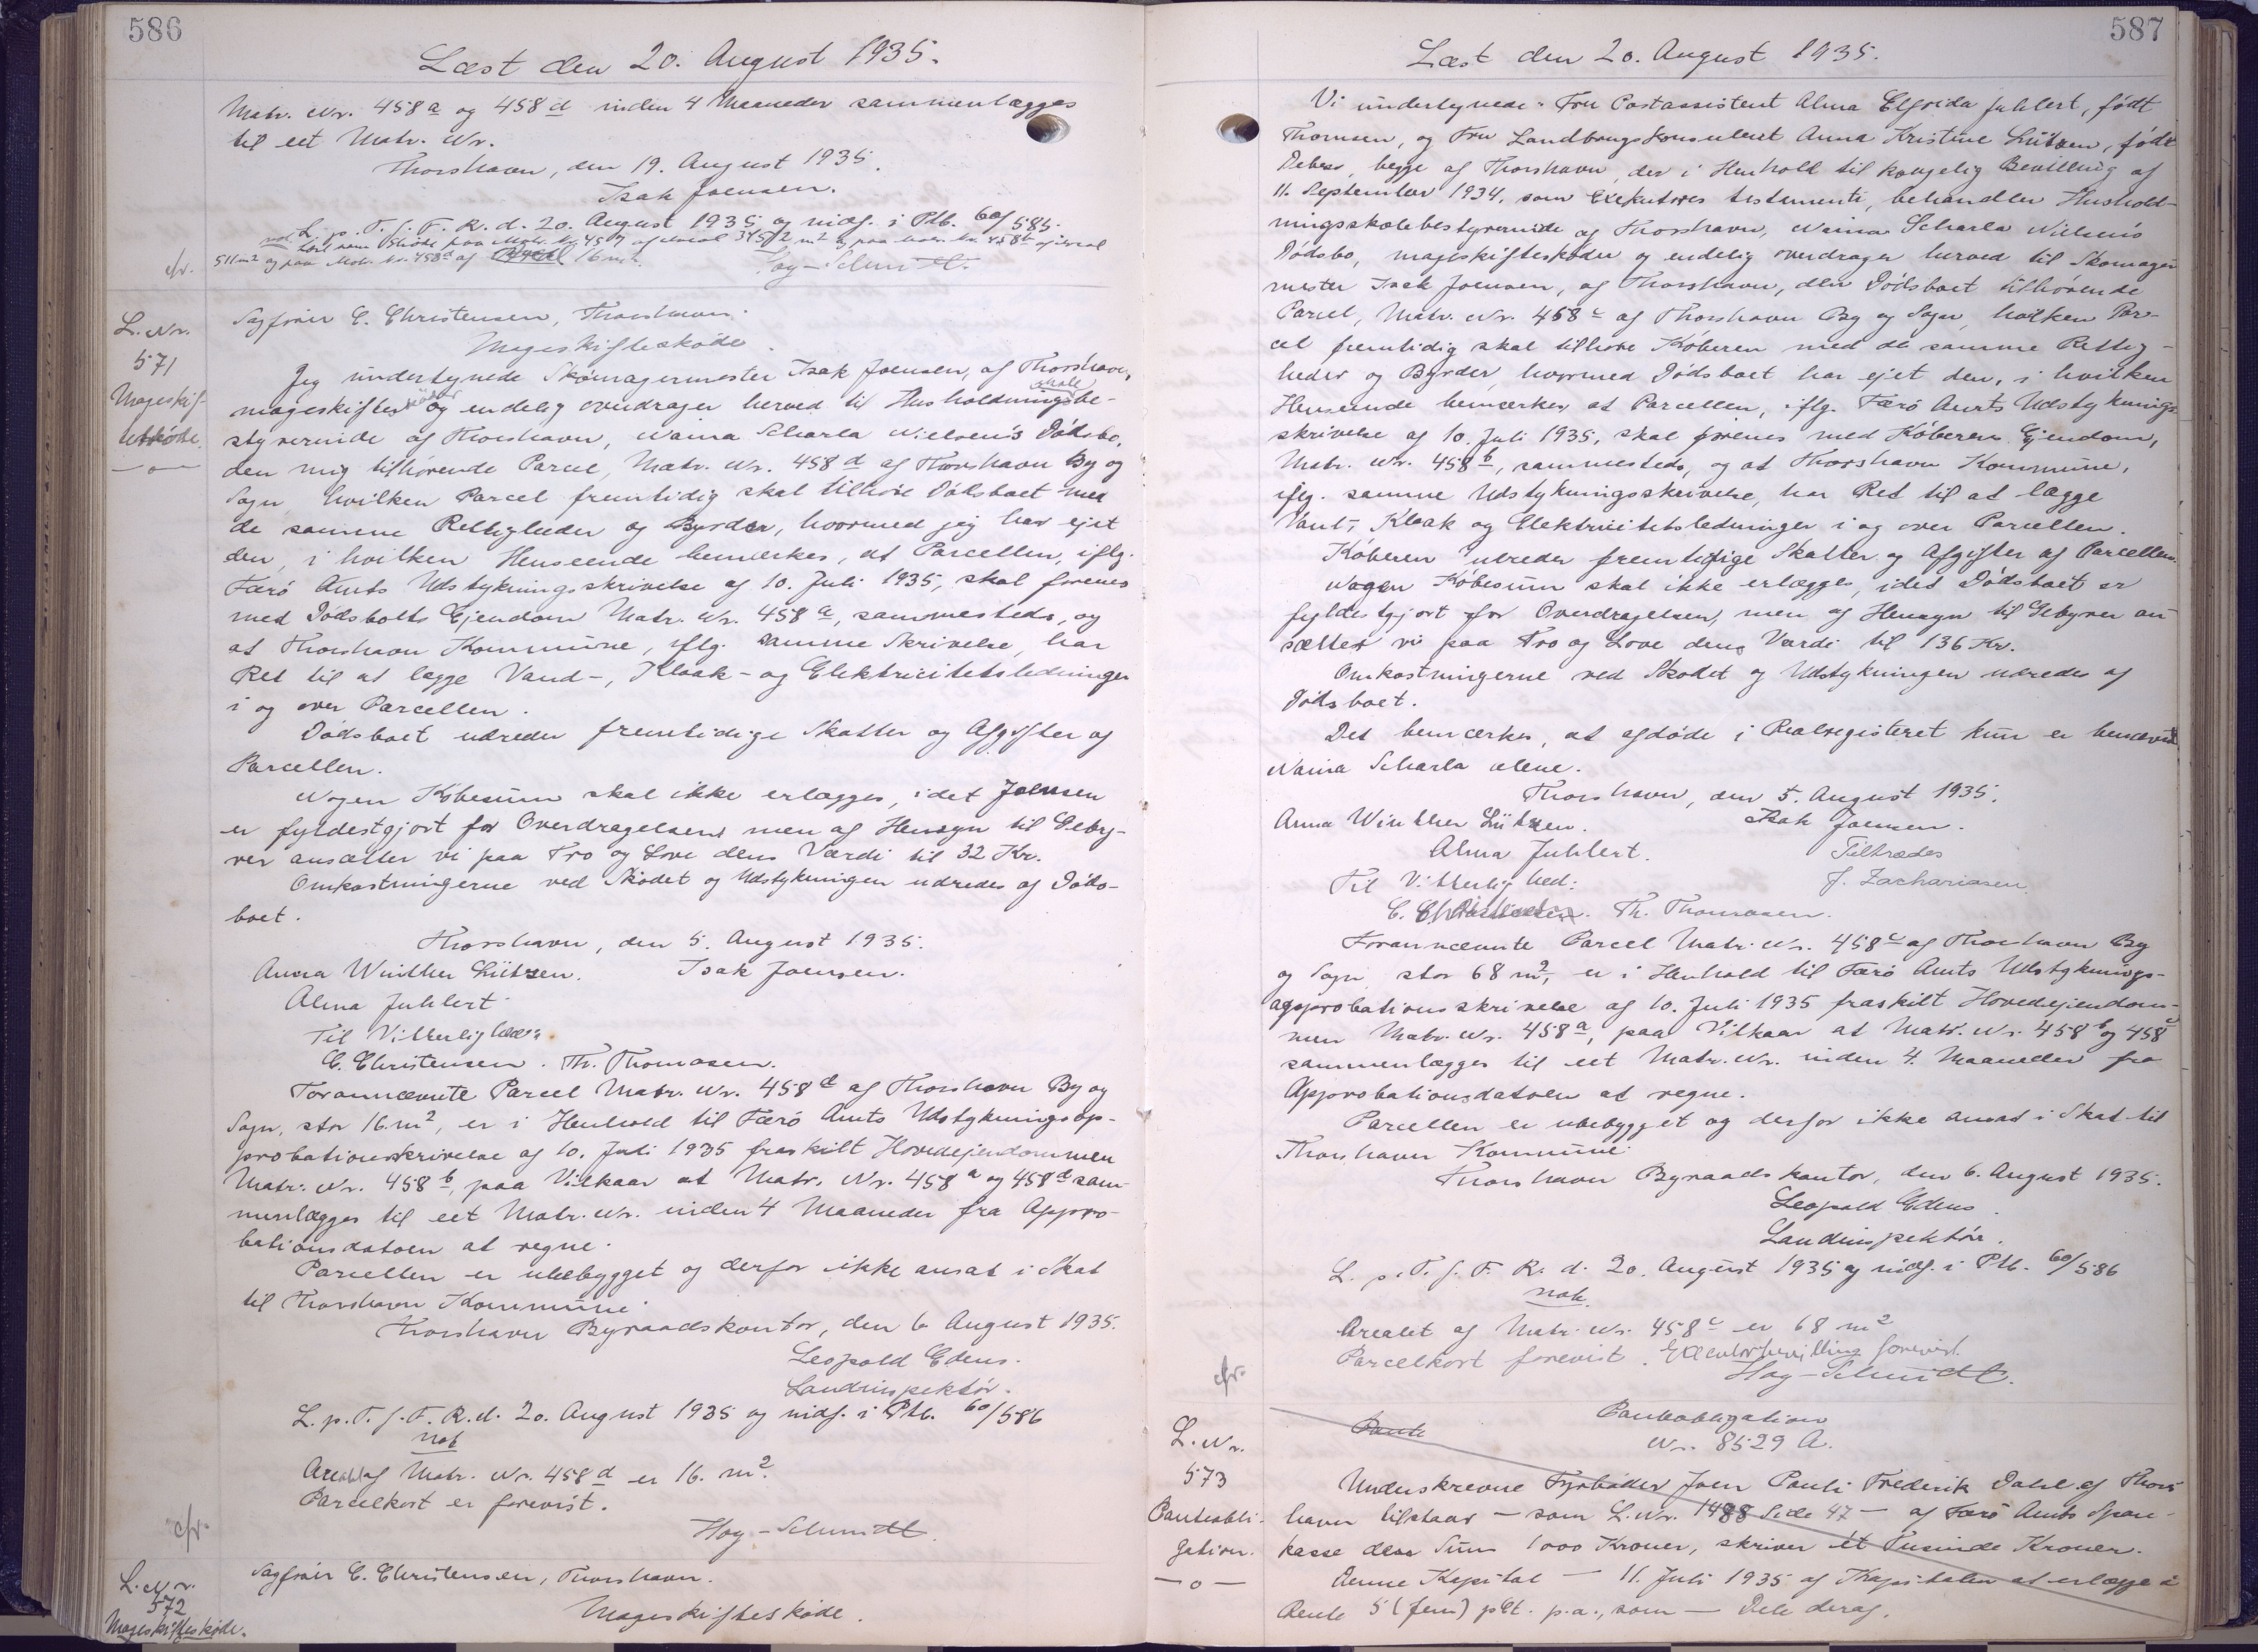 586
Læst den 20. August 1935.
Matr. Nr. 458 a og 458 d inden 4 Maaneder sammenlægges
til eet Matr. Nr.
Thorshavn, den 19. August 1935.
Isak Joensen.
L. p. T. f. F. R. d. 20. August 1935 og nidf. i Ptb. 60/585.
not
Læst som Skøde paa Matr. Nr. 457 af Areal 3452 m2 og paa Matr. Nr. 458 b af Areal
511 m2 og paa Matr. Nr. 458 d af Areal 16 m2.
Høy-Schmidt.
cfr.
L. Nr.
571
Mageskif-
teskøde.
—o—
Sagfører C. Christensen, Thorshavn.
Mageskifteskøde.
Jeg undertegnede Skomagermester Isak Joensen, af Thorshavn,
mageskifteskøder og endelig overdrager herved til Husholdningsskolebe-
styrerinde af Thorshavn, Naina Scharla Nielsen's Dødsbo,
den mig tilhørende Parcel, Matr. Nr. 458 d af Thorshavn By og
Sogn, hvilken Parcel fremtidig skal tilhøre Dødsboet med
de samme Rettigheder og Byrder, hvormed jeg har ejet
den, i hvilken Henseende bemærkes, at Parcellen, iflg.
Færø Amts Udstykningsskrivelse af 10. Juli 1935, skal forenes
med Dødsboets Ejendom Matr. Nr. 458 a, sammesteds, og
at Thorshavn Kommune, iflg. samme Skrivelse, har
Ret til at lægge Vand-, Kloak- og Elektricitetsledninger
i og over Parcellen.
Dødsboet udreder fremtidige Skatter og Afgifter af
Parcellen.
Nogen Købesum skal ikke erlægges, idet Joensen
er fyldestgjort for Overdragelsen, men af Hensyn til Geby-
rer ansætter vi paa Tro og Love dens Værdi til 32 Kr.
Omkostningerne ved Skødet og Udstykningen udredes af Døds-
boet.
Thorshavn, den 5. August 1935.
Anna Winther Lützen. Isak Joensen.
Alma Juhlert.
Til Vitterlighed:
C. Christensen. Th. Thomasen.
Forannævnte Parcel Matr. Nr. 458 d af Thorshavn By og
Sogn, stor 16 m2, er i Henhold til Færø Amts Udstykningsap-
probationsskrivelse af 10. Juli 1935 fraskilt Hovedejendommen
Matr. Nr. 458 b, paa Vilkaar at Matr. Nr. 458 a og 458 d sam-
menlægges til eet Matr. Nr. inden 4 Maaneder fra Appro-
bationsdatoen at regne.
Parcellen er ubebygget og derfor ikke ansat i Skat
til Thorshavn Kommune.
Thorshavn Byraadskontor, den 6 August 1935.
Leopold Edens.
Landinspektør.
L. p. T. f. F. R. d. 20. August 1935 og nidf. i Ptb. 60/586
not
Arealet af Matr. Nr. 458 d er 16. m2.
Parcelkort er forevist.
Høy-Schmidt.
cfr.
L. Nr.
572
Mageskifteskøde.
Sagfører C. Christensen, Thorshavn.
Mageskifteskøde.
587
Læst den 20. August 1935.
Vi undertegnede: Fru Postassistent Alma Elfrida Juhlert, født
Thomsen, og Fru Landbrugskonsulent Anna Kristine Lützen, født
Debes, begge af Thorshavn, der i Henhold til kongelig Bevilling af
11. September 1934, som Exekutores testamenti, behandler Hushold-
ningsskolebestyrerinde af Thorshavn, Naina Scharla Nielsen's
Dødsbo, mageskifteskøder og endelig overdrager herved til Skomager-
mester Isak Joensen, af Thorshavn, den Dødsboet tilhørende
Parcel, Matr. Nr. 458 c af Thorshavn By og Sogn, hvilken Par-
cel fremtidig skal tilhøre Køberen med de samme Rettig-
heder og Byrder, hvormed Dødsboet har ejet den, i hvilken
Henseende bemærkes at Parcellen, iflg. Færø Amts Udstyknings-
skrivelse af 10. Juli 1935, skal forenes med Køberens Ejendom,
Matr. Nr. 458 b, sammesteds, og at Thorshavn Kommune,
iflg. samme Udstykningsskrivelse, har Ret til at lægge
Vand-, Kloak og Elektricitetsledninger i og over Parcellen.
Køberen udreder fremtidige Skatter og Afgifter af Parcellen.
Nogen Købesum skal ikke erlægges, idet Dødsboet er
fyldestgjort for Overdragelsen, men af Hensyn til Gebyrer an
sætter vi paa Tro og Love dens Værdi til 136 Kr.
Omkostningerne ved Skødet og Udstykningen udredes af
Dødsboet.
Det bemærkes, at afdøde i Realregisteret kun er benævnt
Naina Scharla alene.
Thorshavn, den 5. August 1935.
Anna Winther Lützen. Isak Joensen.
Alma Juhlert. Tiltrædes
Til Vitterlighed: J. Zachariasen.
C. Christensen. Th. Thomasen.
Forannævnte Parcel Matr. Nr. 458 c af Thorshavn By
og Sogn, stor 68 m2, er i Henhold til Færø Amts Udstyknings-
approbationsskrivelse af 10. Juli 1935 fraskilt Hovedejendom-
men Matr. Nr. 458 a, paa Vilkaar at Matr. Nr. 458 b og 458 c
sammenlægges til eet Matr. Nr. inden 4. Maaneder fra
Approbationsdatoen at regne.
Parcellen er ubebygget og derfor ikke ansat i Skat til
Thorshavn Kommune.
Thorshavn Byraadskontor, den 6. August 1935.
Leopold Edens.
Landinspektør.
L. p. T. f. F. R. d. 20. August 1935 og nidf. i Ptb. 60/586
not
Arealet af Matr. Nr. 458 c er 68 m2
Parcelkort forevist. Executorbevilling forevist.
Høy-Schmidt.
cfr.
L. Nr.
573
Panteobli-
gation.
—o—
Pante
Panteobligation
Nr. 8529 A.
Underskrevne Fyrbøder Joen Pauli Frederik Dahl af Thors
havn tilstaar — som L. Nr. 1488 Side 47 — af Færø Amts Spare-
kasse den Sum 1000 Kroner, skriver ét Tusinde Kroner.
Denne Kapital — 11. Juli 1935 af Kapitalen at erlægge i
Rente 5 (fem) pCt. p.a., som — Dele deraf.